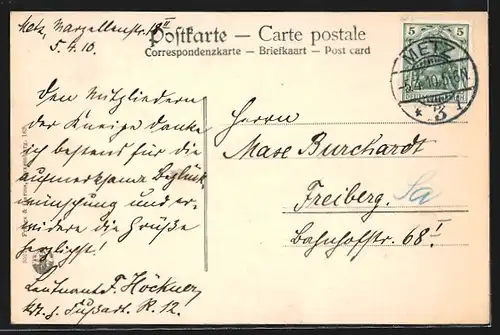 Metz, Marzellenstr. 18 II
5.4.10.
Postkarte – Carte postale
Correspondenzkarte – Briefkaart – Post card
5 5
METZ
* 3
Den Mitgliedern
der Kneipe danke
ich bestens für die
aufmerksame Beglück-
wünschung und er-
widere die Grüße
herzlichst!
Leutnant F. Höckner
Fußart. R. 12.
Herrn
Max Burchardt
Freiberg. Sa
Bahnhofstr. 68 I